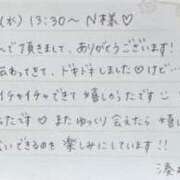 (水) 13:30〜 N様♡
んで頂きまして、ありがとうございます！
伝わってきて、ドキドキしました♡けど…
イチャイチャできて嬉しかったです
たです またゆっくり会えたら嬉し
いできるのを楽しみにしています!!
湊